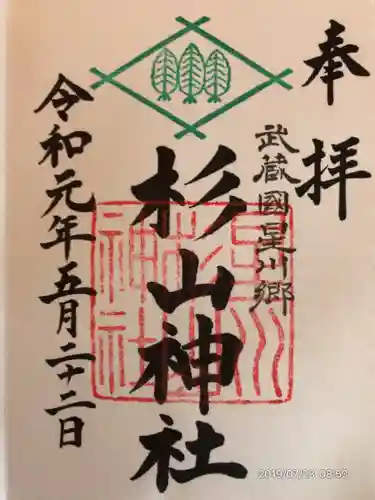 奉拝
武蔵國星川郷
杉山神社
令和元年五月二十二日
2019/07/23 08:53